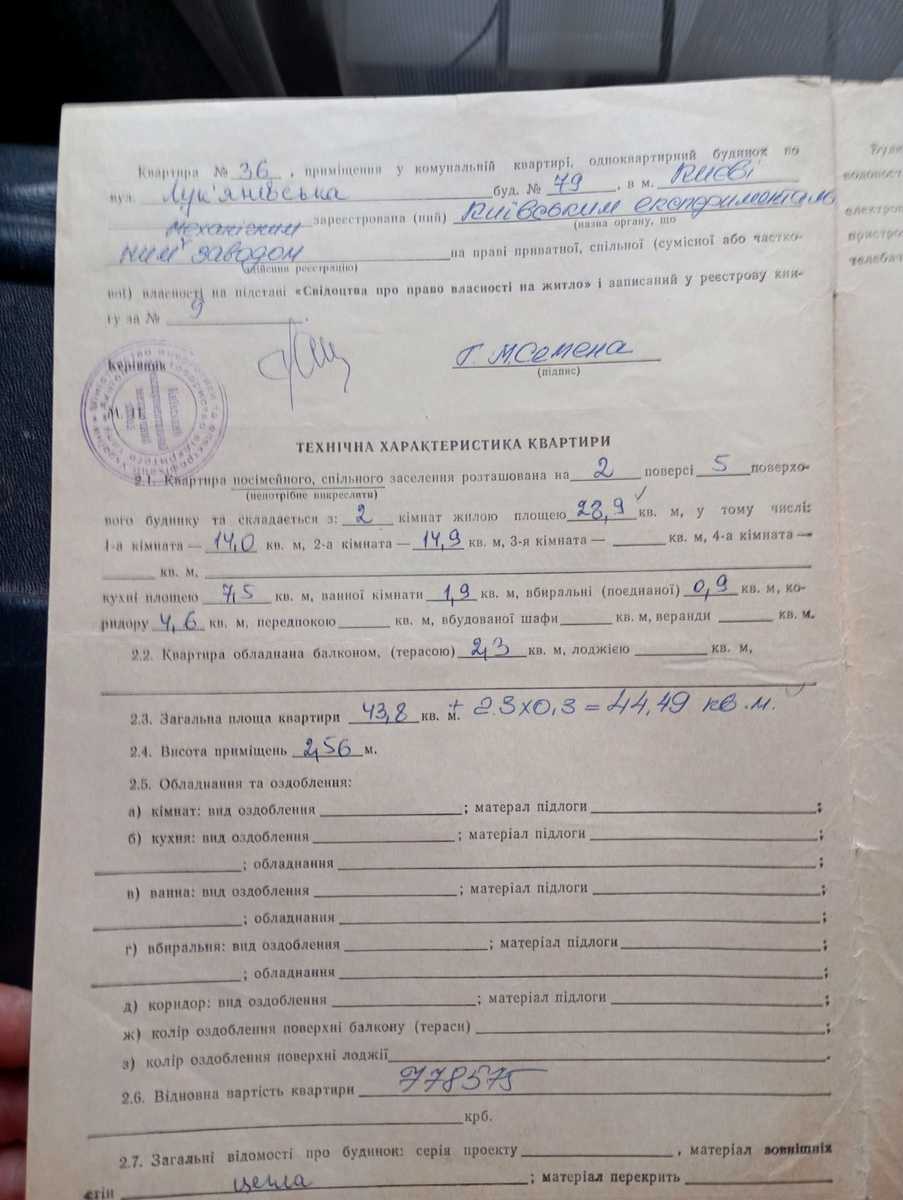 Квартира № 36 , приміщення у комунальній квартирі, одноквартирний будинок по
вул. Лук'янівська буд. № 79 , в м. Києві
зареєстрована (ний) Київським експерименталь
механічним (назва органу, що
ним заводом на праві приватної, спільної (сумісної або частко-
здійснив реєстрацію)
вої) власності на підставі «Свідоцтва про право власності на житло» і записаний у реєстрову кни-
гу за № 9
Керівник Г. М. Семена
(підпис)
М. П.
ТЕХНІЧНА ХАРАКТЕРИСТИКА КВАРТИРИ
2.1. Квартира посімейного, спільного заселення розташована на 2 поверсі 5 поверхо-
(непотрібне викреслити)
вого будинку та складається з: 2 кімнат жилою площею 28,9 кв. м, у тому числі:
1-а кімната — 14,0 кв. м, 2-а кімната — 14,9 кв. м, 3-я кімната — кв. м, 4-а кімната —
кв. м,
кухні площею 7,5 кв. м, ванної кімнати 1,9 кв. м, вбиральні (поєднаної) 0,9 кв. м, ко-
ридору 4,6 кв. м, передпокою кв. м, вбудованої шафи кв. м, веранди кв. м.
2.2. Квартира обладнана балконом, (терасою) 2,3 кв. м, лоджією кв. м,
2.3. Загальна площа квартири 43,8 кв. м. + 2.3х0,3 = 44,49 кв.м.
2.4. Висота приміщень 2,56 м.
2.5. Обладнання та оздоблення:
а) кімнат: вид оздоблення ; матерал підлоги ;
б) кухня: вид оздоблення ; матеріал підлоги ;
; обладнання ;
в) ванна: вид оздоблення ; матеріал підлоги ;
; обладнання ;
г) вбиральня: вид оздоблення ; матеріал підлоги ;
; обладнання ;
д) коридор: вид оздоблення ; матеріал підлоги ;
ж) колір оздоблення поверхні балкону (тераси) ;
з) колір оздоблення поверхні лоджії .
2.6. Відновна вартість квартири 778575
крб.
2.7. Загальні відомості про будинок: серія проекту , матеріал зовнішніх
стін цегла ; матеріал перекрить